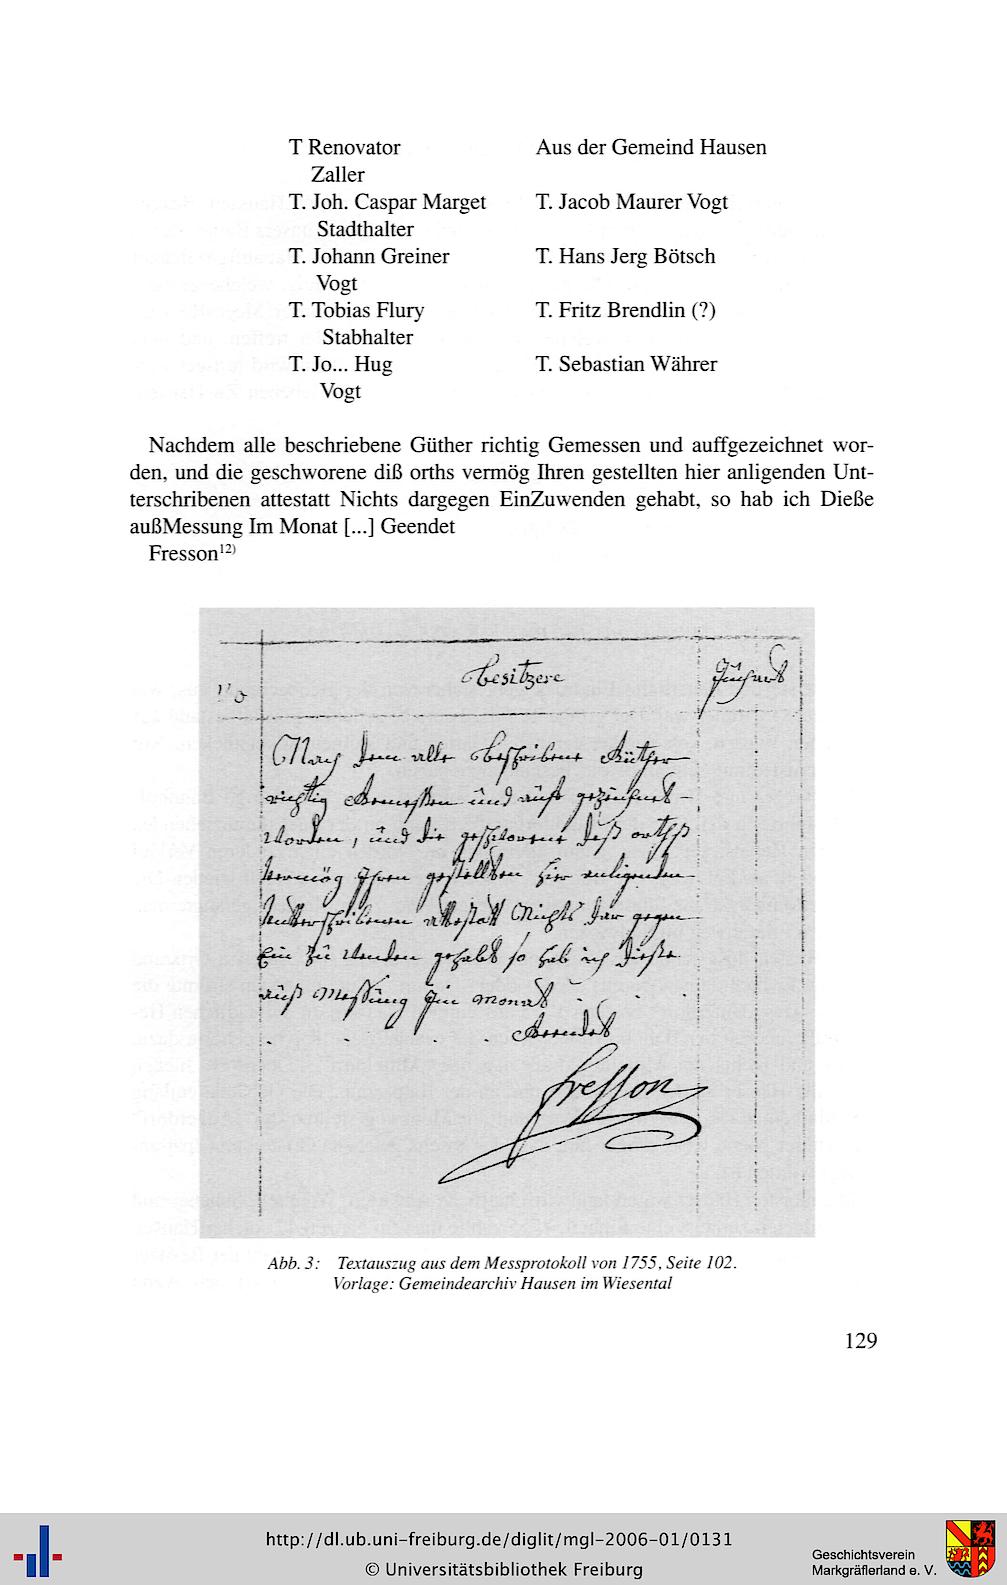 T Renovator Aus der Gemeind Hausen
Zaller
T. Joh. Caspar Marget T. Jacob Maurer Vogt
Stadthalter
T. Johann Greiner T. Hans Jerg Bötsch
Vogt
T. Tobias Flury T. Fritz Brendlin (?)
Stabhalter
T. Jo... Hug T. Sebastian Währer
Vogt
Nachdem alle beschriebene Güther richtig Gemessen und auffgezeichnet wor-
den, und die geschworene diß orths vermög Ihren gestellten hier anligenden Unt-
terschribenen attestatt Nichts dargegen EinZuwenden gehabt, so hab ich Dieße
außMessung Im Monat [...] Geendet
Fresson12)
No Besitzere Jüchart
Nach dem alle Beschribene Güther
richtig Gemessen und auff gezeichnet
Worden, und die geschworene diß orthß
Vermög Ihren gestellten hier anligenden
Untterschribenen attestatt Nichts dar gegen
Ein Zu Wenden gehabt so hab ich dieße
auß Messung Im Monat . . .
. . . . . Geendet
Fresson
Abb. 3: Textauszug aus dem Messprotokoll von 1755, Seite 102.
Vorlage: Gemeindearchiv Hausen im Wiesental
129
http://dl.ub.uni-freiburg.de/diglit/mgl-2006-01/0131
© Universitätsbibliothek Freiburg
Geschichtsverein
Markgräflerland e. V.